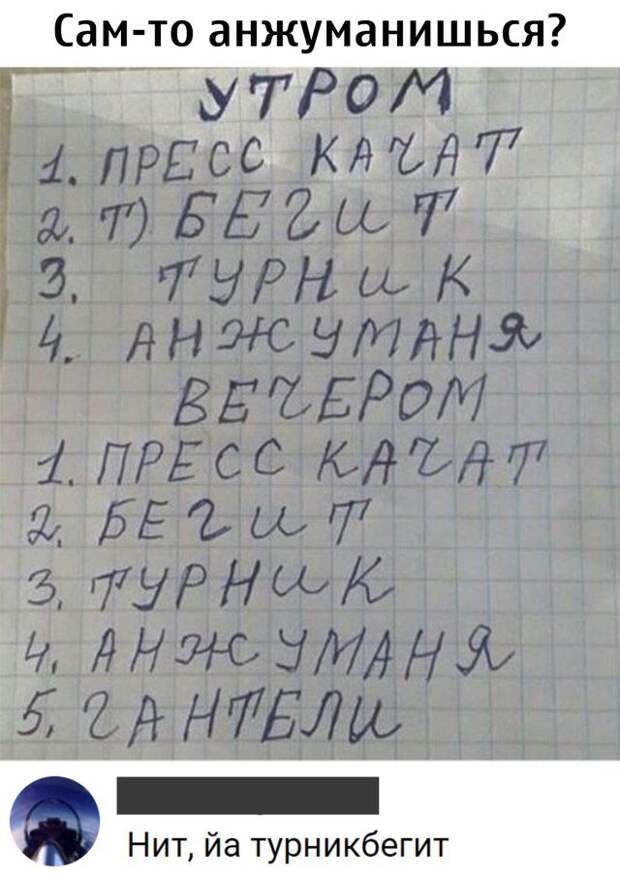 Сам-то анжуманишься?
УТРОМ
1. ПРЕСС КАЧАТ
2. Т) БЕГИТ
3. ТУРНИК
4. АНЖУМАНЯ
ВЕЧЕРОМ
1. ПРЕСС КАЧАТ
2. БЕГИТ
3. ТУРНИК
4. АНЖУМАНЯ
5. ГАНТЕЛИ
Нит, йа турникбегит